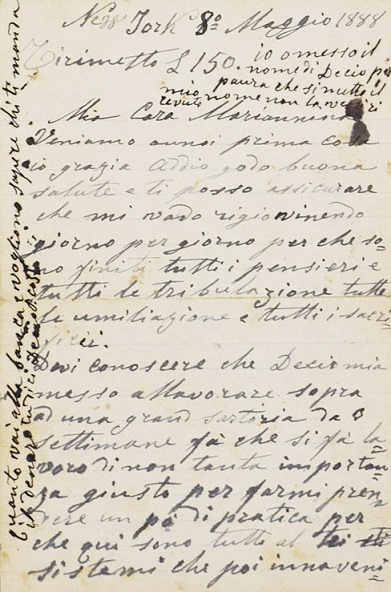 New Jork 8º Maggio 1888
Ti rimetto £ 150. io o messo il
nome di Decio per
paura che si metto il
mio nome non la
Mia Cara Mariannina
Veniamo a noi prima cosa
io grazia Addio godo buona
salute e ti posso assicurare
che mi vado rigiovinendo
giorno per giorno per che so=
no finiti tutti i pensieri e
tutti le tribulazione tutte
le umiliazione e tutti i sacri
ficii.
Devi conoscere che Decio mia
messo allavorare sopra
a una grand sartoria da 3
settimane fà che si fà la=
voro di non tanta importan=
za giusto per farmi pren=
dere un pò di pratica per
che qui sono tutti al
sistemi che poi innaveni=
quanto vai alla banca e vogliono sapere chi ti manda
il denaro tu rici Decio